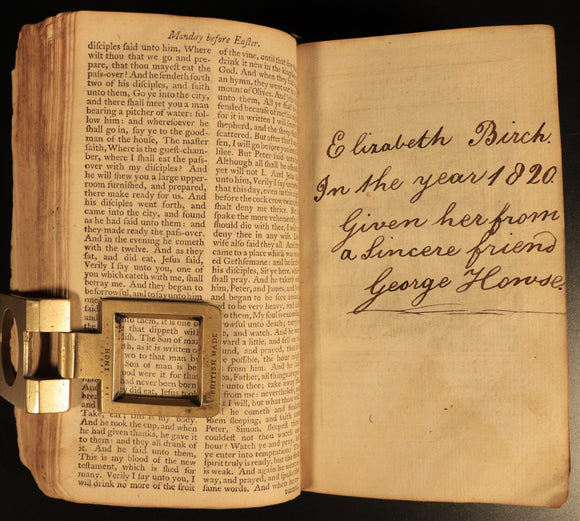 Monday before Eaſter.
diſciples ſaid unto him, Where
wilt thou that we go and pre-
pare, that thou mayeſt eat the
paſs-over? And he ſendeth forth
two of his diſciples, and ſaith
unto them, Go ye into the city,
and there ſhall meet you a man
bearing a pitcher of water: fol-
low him: and whereſoever he
ſhall go in, ſay ye to the good-
man of the houſe, The maſter
ſaith, Where is the gueſt-cham-
ber, where I ſhall eat the paſs-
over with my diſciples? And
he will ſhew you a large upper-
room furniſhed, and prepared,
there make ready for us. And
his diſciples went forth, and
came into the city, and found
as he had ſaid unto them: and
they made ready the paſs-over.
And in the evening he cometh
with the twelve. And as they
ſat, and did eat, Jeſus ſaid,
Verily I ſay unto you, one of
you which eateth with me, ſhall
betray me. And they began to
be ſorrowful, and to ſay unto him
unto them, It is one of
that dippeth with
The Son of man
as it is written of
wo to that man by
Son of man is be-
good were it for that
had never been born
they did eat, Jeſus
Take, eat; this is my body.
And he took the cup, and when
he had given thanks, he gave it
to them: and they all drank of
it. And he ſaid unto them,
This is my blood of the new
teſtament, which is ſhed for
many. Verily I ſay unto you, I
will drink no more of the fruit
of the vine, until that
drink it new in the
God. And when they
an hymn, they went out
mount of Olives. And
unto them, All ye ſhall
fended becauſe of me
for it is written I will
ſhepherd, and the ſheep
ſcattered. But after
en, I will go before you
But Peter ſaid
Although all ſhall be
yet will not I. And
unto him, Verily I ſay
that this day, even in this
before the cock crow twice
ſhalt deny me thrice. But
ſpake the more vehemently
ſhould die with thee, I will
deny thee in any wiſe.
wiſe alſo ſaid they all. And
came to a place which was
ed Gethſemane: and he
his diſciples, Sit ye here, while
ſhall pray. And he taketh
him, Peter, and James, and
and began to be ſore
and to be very heavy,
unto them, My ſoul is
rowful unto death;
and watch. And he
ward a little, and fell
ground, and prayed, that
were poſſible, the hour might
from him. And he
Father, all things are
unto thee; take away
from me: nevertheleſs,
will, but what thou
he cometh and findeth
them ſleeping, and ſaith
Peter, Simon, ſleepeſt
couldeſt not thou watch one
hour? Watch ye and pray,
ye enter into temptation:
ſpirit truly is ready, but the
is weak. And again he went
way, and prayed, and ſpake
ſame words. And when he
INCH
BRITISH MADE
Elizabeth Birch.
In the year 1820.
Given her from
a Sincere friend
George Howse.